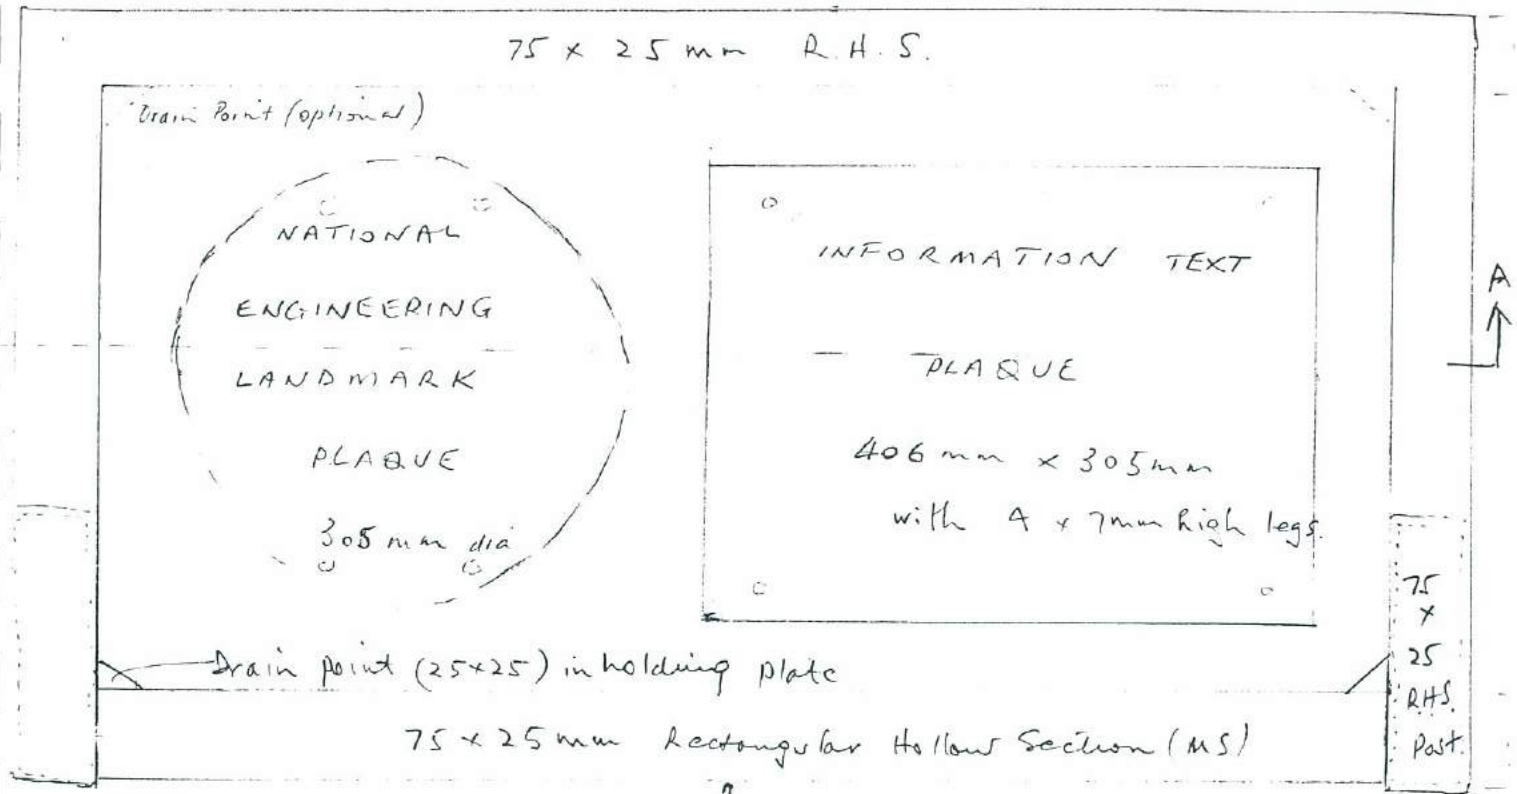 75 x 25 mm R.H.S.
Drain Point (optional)
NATIONAL
ENGINEERING
LANDMARK
PLAQUE
305 mm dia
INFORMATION TEXT
PLAQUE
406 mm x 305 mm
with 4 x 7mm high legs.
A
75
x
25
RHS.
Post.
Drain point (25x25) in holding plate
75 x 25 mm Rectangular Hollow Section (MS)